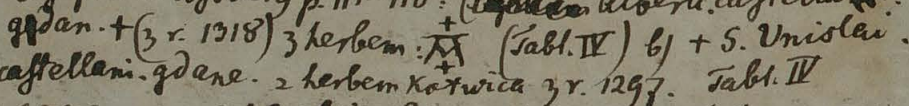 gdan. + (z r. 1318) z herbem: (Tabl. IV) b) + S. Unislai.
castellani. gdane. z herbem Kotwica z r. 1297. Tabl. IV